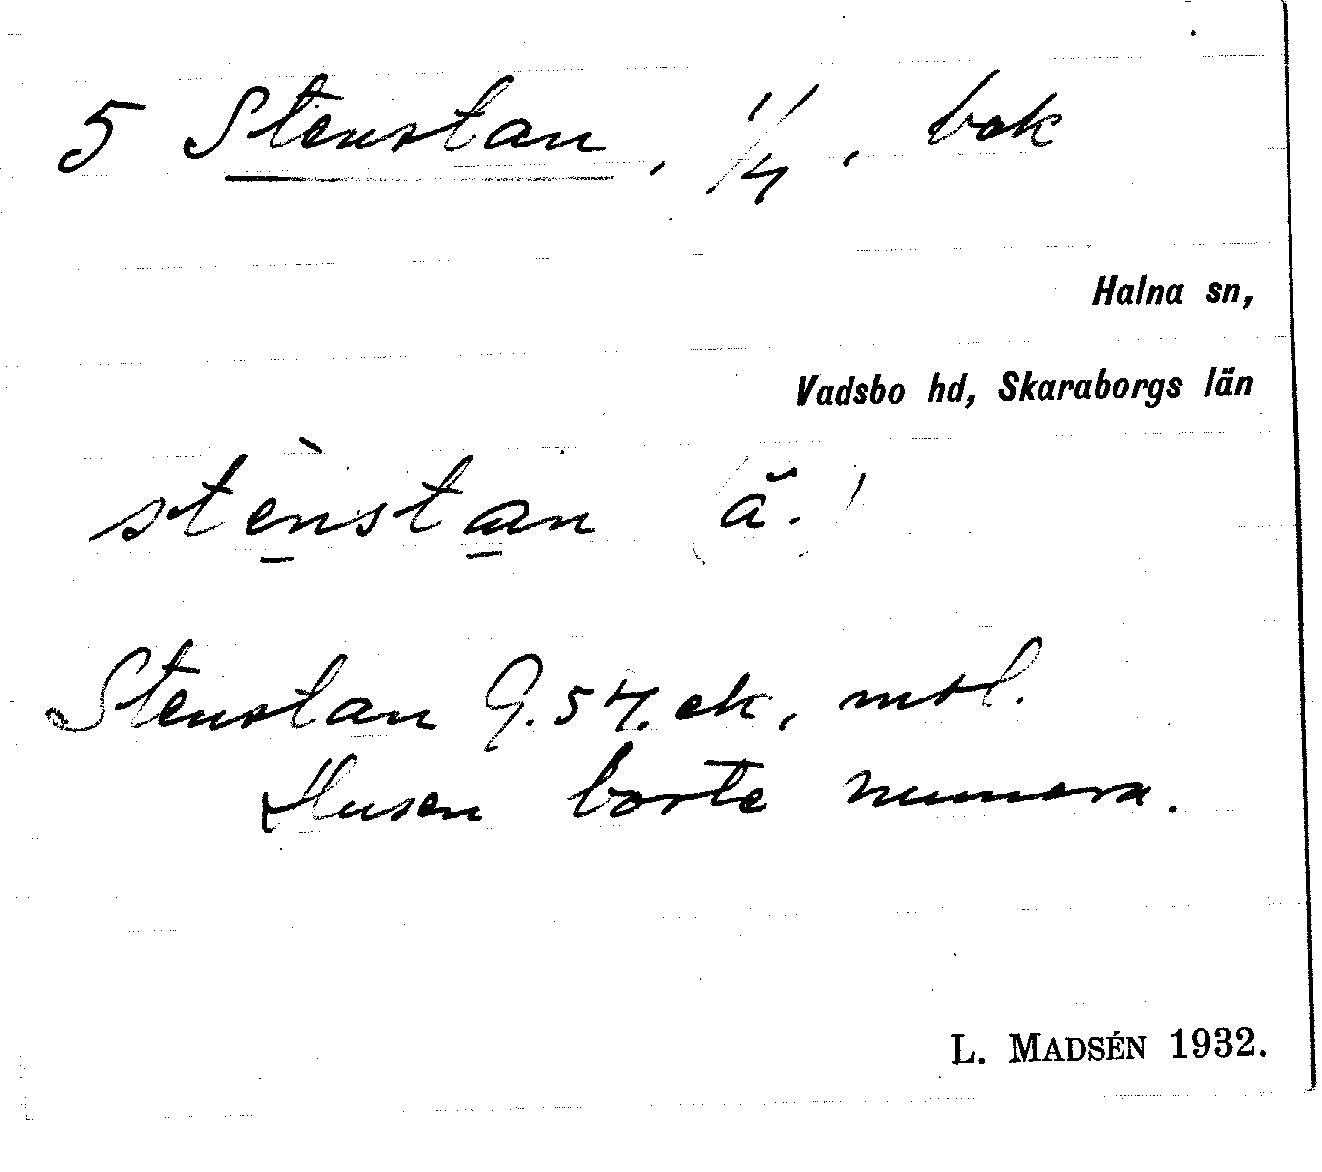 5 Stenstan, 1/4, bok
Halna sn,
Vadsbo hd, Skaraborgs län
stènstan (ä.)
Stenstan G.54.ek, mtl.
Husen borte numera.
L. MADSÉN 1932.